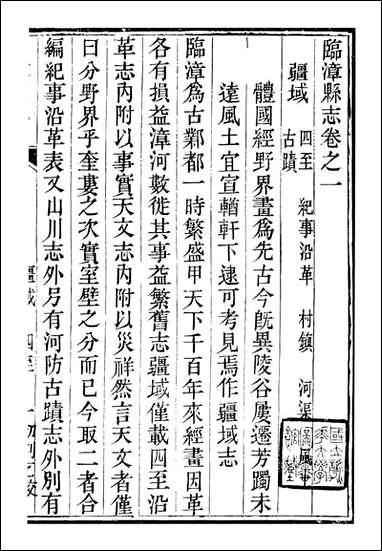 臨漳縣志卷之一
疆域 四至 紀事沿革 村鎮 河渠
古蹟
體國經野界畫爲先古今旣異陵谷屢遷芳躅未
遠風土宜宣輶軒下逮可考見焉作疆域志
臨漳爲古鄴都一時繁盛甲天下千百年來經畫因革
各有損益漳河數徙其事益繁舊志疆域僅載四至沿
革志內附以事實天文志內附以災祥然言天文者僅
曰分野界乎奎婁之次實室壁之分而已今取二者合
編紀事沿革表又山川志外另有河防古蹟志外別有
疆域 四至 一